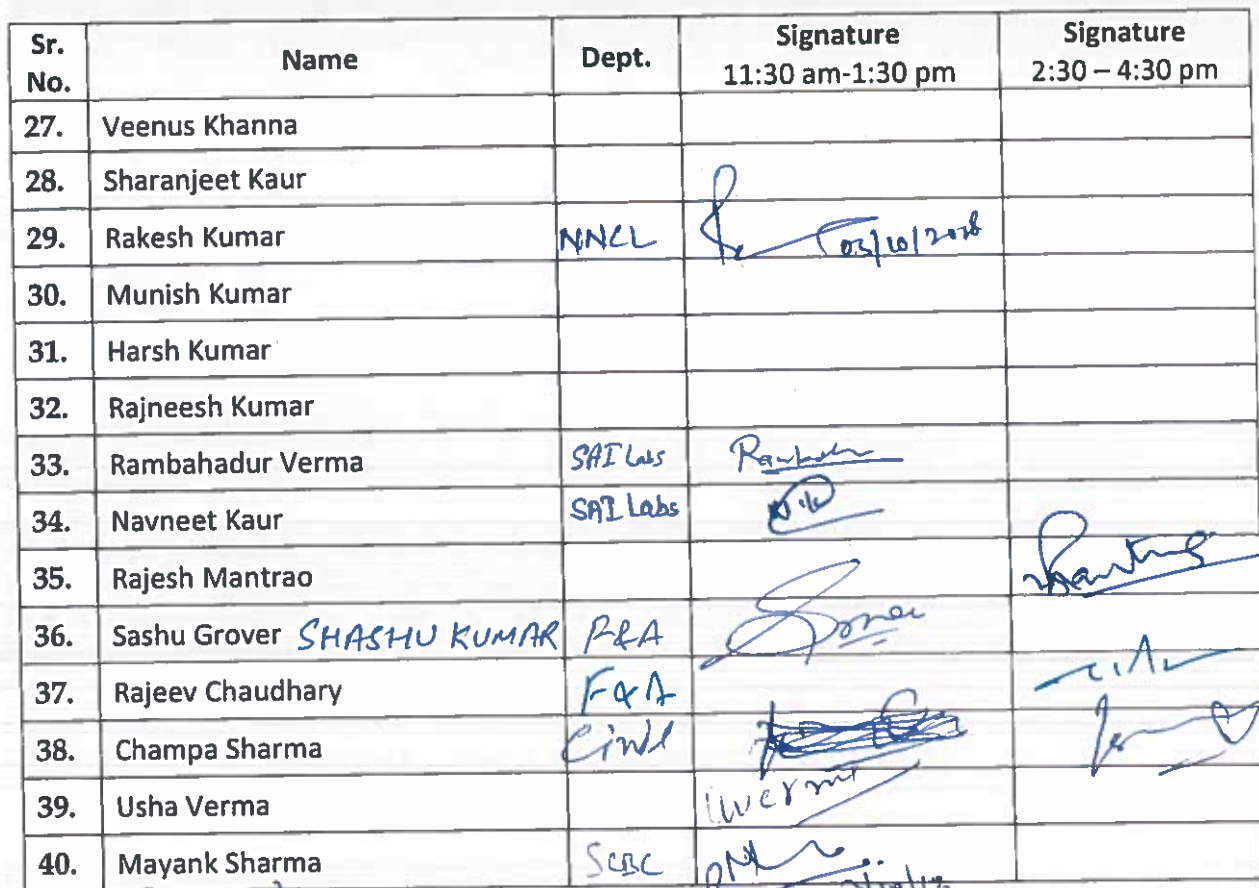 Sr. No. Name Dept. Signature 11:30 am-1:30 pm Signature 2:30 – 4:30 pm
27. Veenus Khanna
28. Sharanjeet Kaur
29. Rakesh Kumar NNCL 03/10/2018
30. Munish Kumar
31. Harsh Kumar
32. Rajneesh Kumar
33. Rambahadur Verma SAI Labs
34. Navneet Kaur SAI Labs
35. Rajesh Mantrao
36. Sashu Grover SHASHU KUMAR P&A
37. Rajeev Chaudhary F&A
38. Champa Sharma Civil
39. Usha Verma Uverma
40. Mayank Sharma SCBC